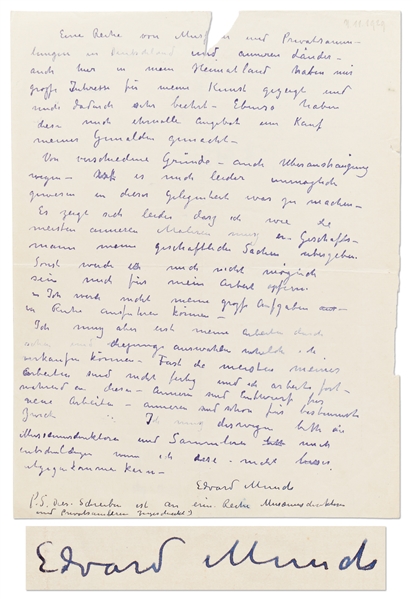 9.11.1929
Eine Reihe von Museen und Privatsamm-
lungen in Deutschland und anderen Länder-
auch hier in mein Heimatland haben mir
große Interesse für meine Kunst gezeigt und
mich dadurch sehr beehrt - Ebenso haben
diese mich ehrenvolle Angebot zum Kauf
meiner Gemälden gemacht -
Von verschiedene Gründe - auch Überanstrengung
wegen - es mich leider unmöglich
gewesen in dieser Gelegenheit was zu machen -
Es zeigt sich leider dasz ich wie die
meisten anderen Mahlern musz en Geschäfts-
mann meine geschäftliche Sachen übergeben
Sonst werde ich nicht möglich
sein mich für mein Arbeit opfern
- Ich werde nicht meine große Aufgaben
in Ruhe ausführen können -
Ich musz aber erst meine Arbeiten
und diejenige auswahlen welche
verkaufen können - Fast die meisten meiner
Arbeiten sind nicht fertig und ich arbeite fort-
während an diese - Andere sind Entwurf für
neue Arbeiten - andere sind schon für bestimmte
Zweck - Ich musz deswegen bitte die
Museumsdirektoren und Sammlern mich
entschuldigen wenn ich diese nicht besser
entgegenkomme kann -
Edvard Munch
P.S. Dies Schreiben ist an eine Reihe Museumsdirektoren
und Privatsammlern zugeschickt)
Edvard Munch